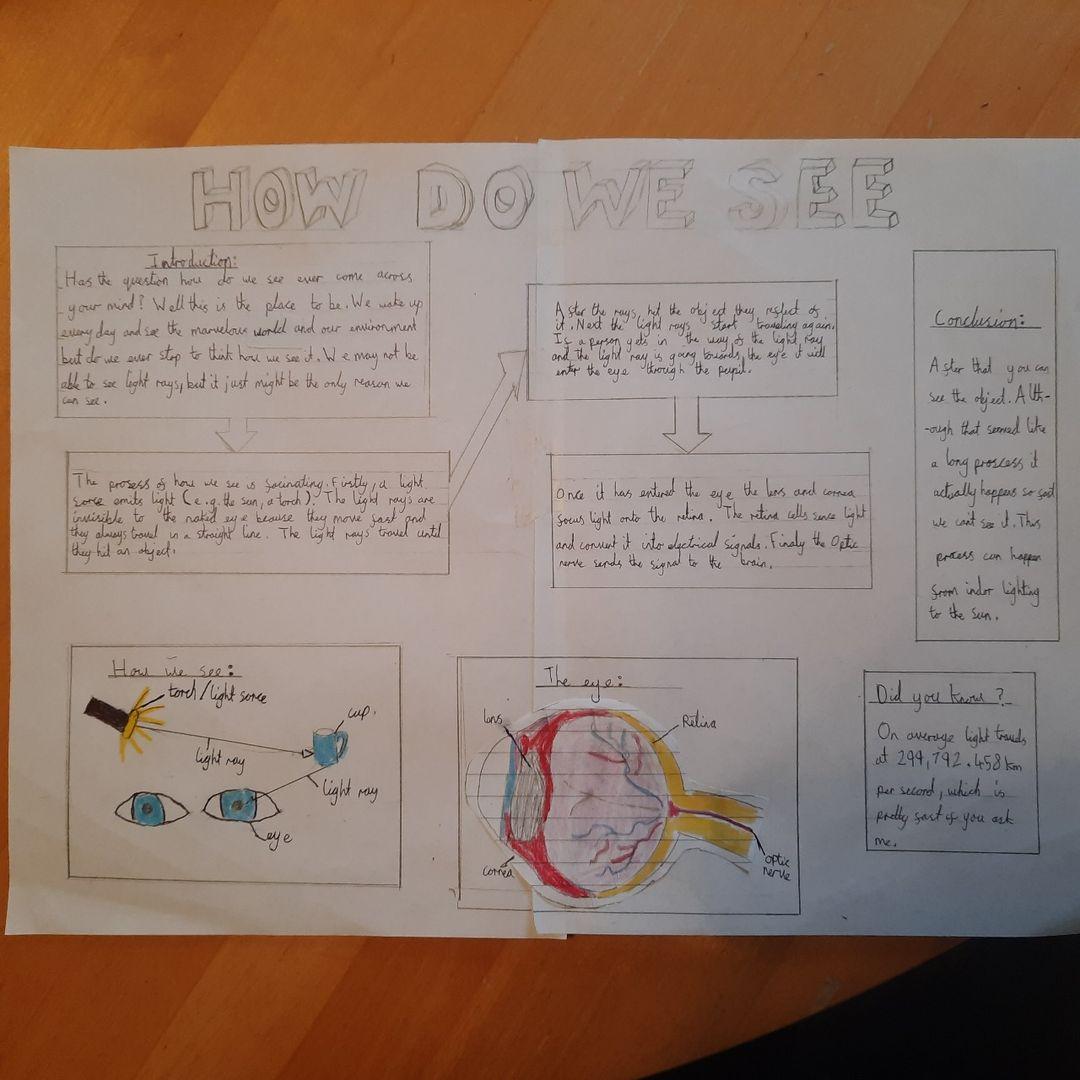 HOW DO WE SEE
Introduction:
Has the question how do we see ever come across
your mind? Well this is the place to be. We wake up
every day and see the marvelous world and our environment
but do we ever stop to think how we see it. We may not be
able to see light rays, but it just might be the only reason we
can see.
The prosess of how we see is facinating. Firstly, a light
sorce emits light (e.g. the sun, a torch). The light rays are
invisible to the naked eye because they move fast and
they always travel in a straight line. The light rays travel until
they hit an object.
After the rays, hit the object they reflect of
it. Next the light rays start traveling again.
If a person gets in the way of the light ray
and the light ray is going towards the eye it will
enter the eye through the pupil.
Once it has entered the eye the lens and cornea
focus light onto the retina. The retina cells sence light
and convert it into electrical signals. Finaly the Optic
nerve sends the signal to the brain.
Conclusion:
After that you can
see the object. Alth-
-ough that seemed like
a long proscess it
actually happens so fast
we cant see it. This
process can happen
from indor lighting
to the sun.
How we see:
torch/light sorce
cup.
light ray
light ray
eye
The eye:
lens
Retina
cornea
optic
nerve
Did you know?
On average light travels
at 299,792.458km
per second, which is
pretty fast if you ask
me.